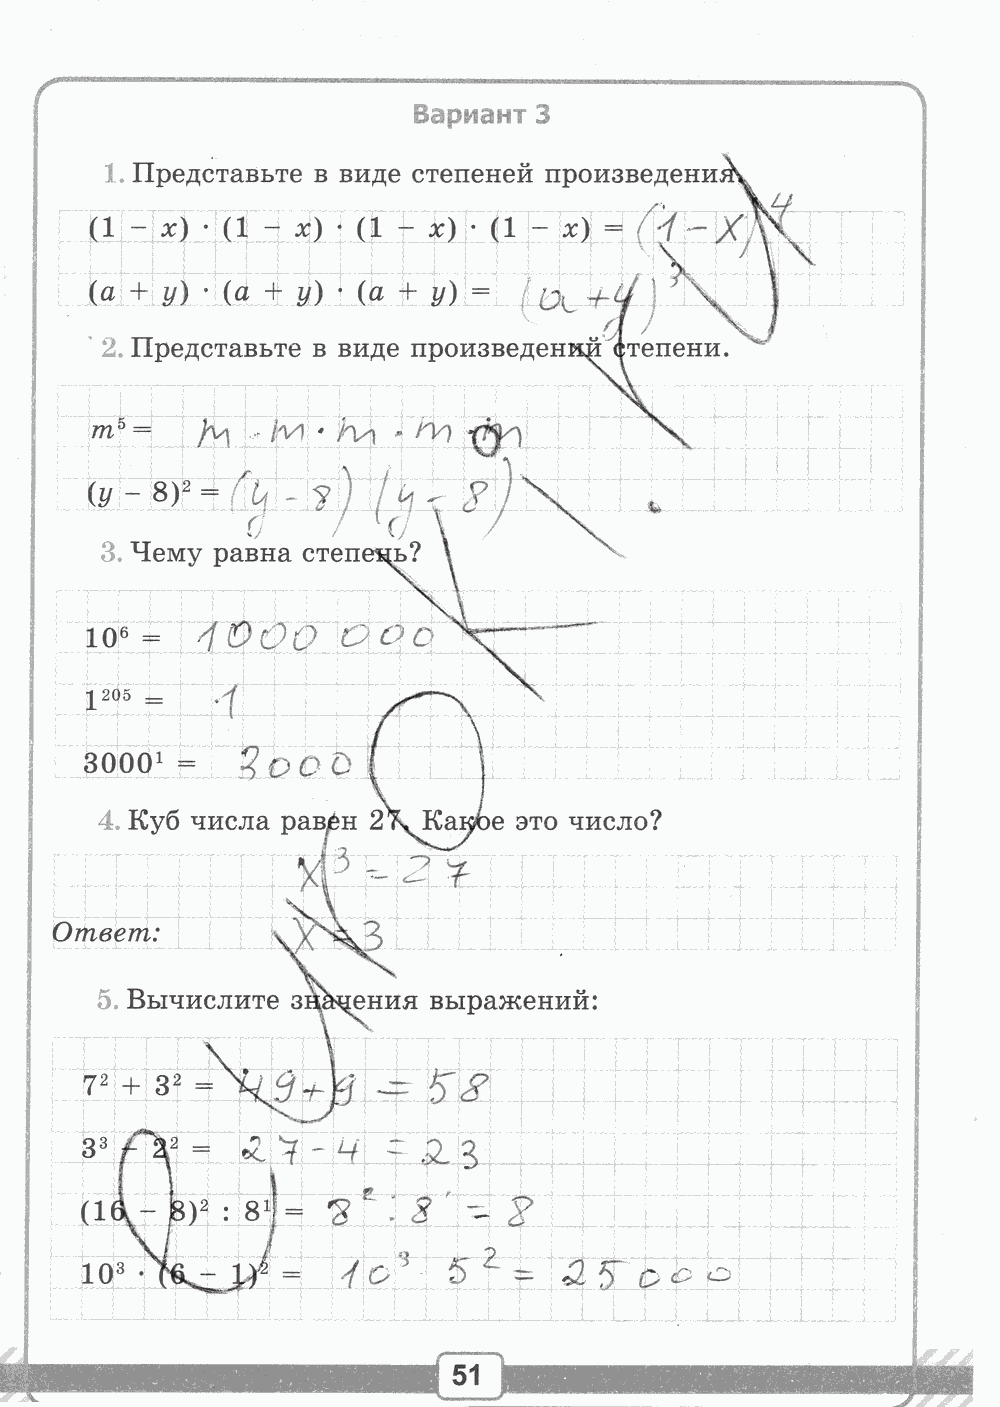 Вариант 3
1. Представьте в виде степеней произведения.
(1 − x) · (1 − x) · (1 − x) · (1 − x) = (1 − x)⁴
(a + y) · (a + y) · (a + y) = (a + y)³
2. Представьте в виде произведений степени.
m⁵ = m · m · m · m · m
(y − 8)² = (y − 8) (y − 8)
3. Чему равна степень?
10⁶ = 1000 000
1²⁰⁵ = 1
3000¹ = 3000
4. Куб числа равен 27. Какое это число?
x³ = 27
Ответ: x = 3
5. Вычислите значения выражений:
7² + 3² = 49 + 9 = 58
3³ − 2² = 27 − 4 = 23
(16 − 8)² : 8¹ = 8² : 8¹ = 8
10³ · (6 − 1)² = 10³ · 5² = 25000
51